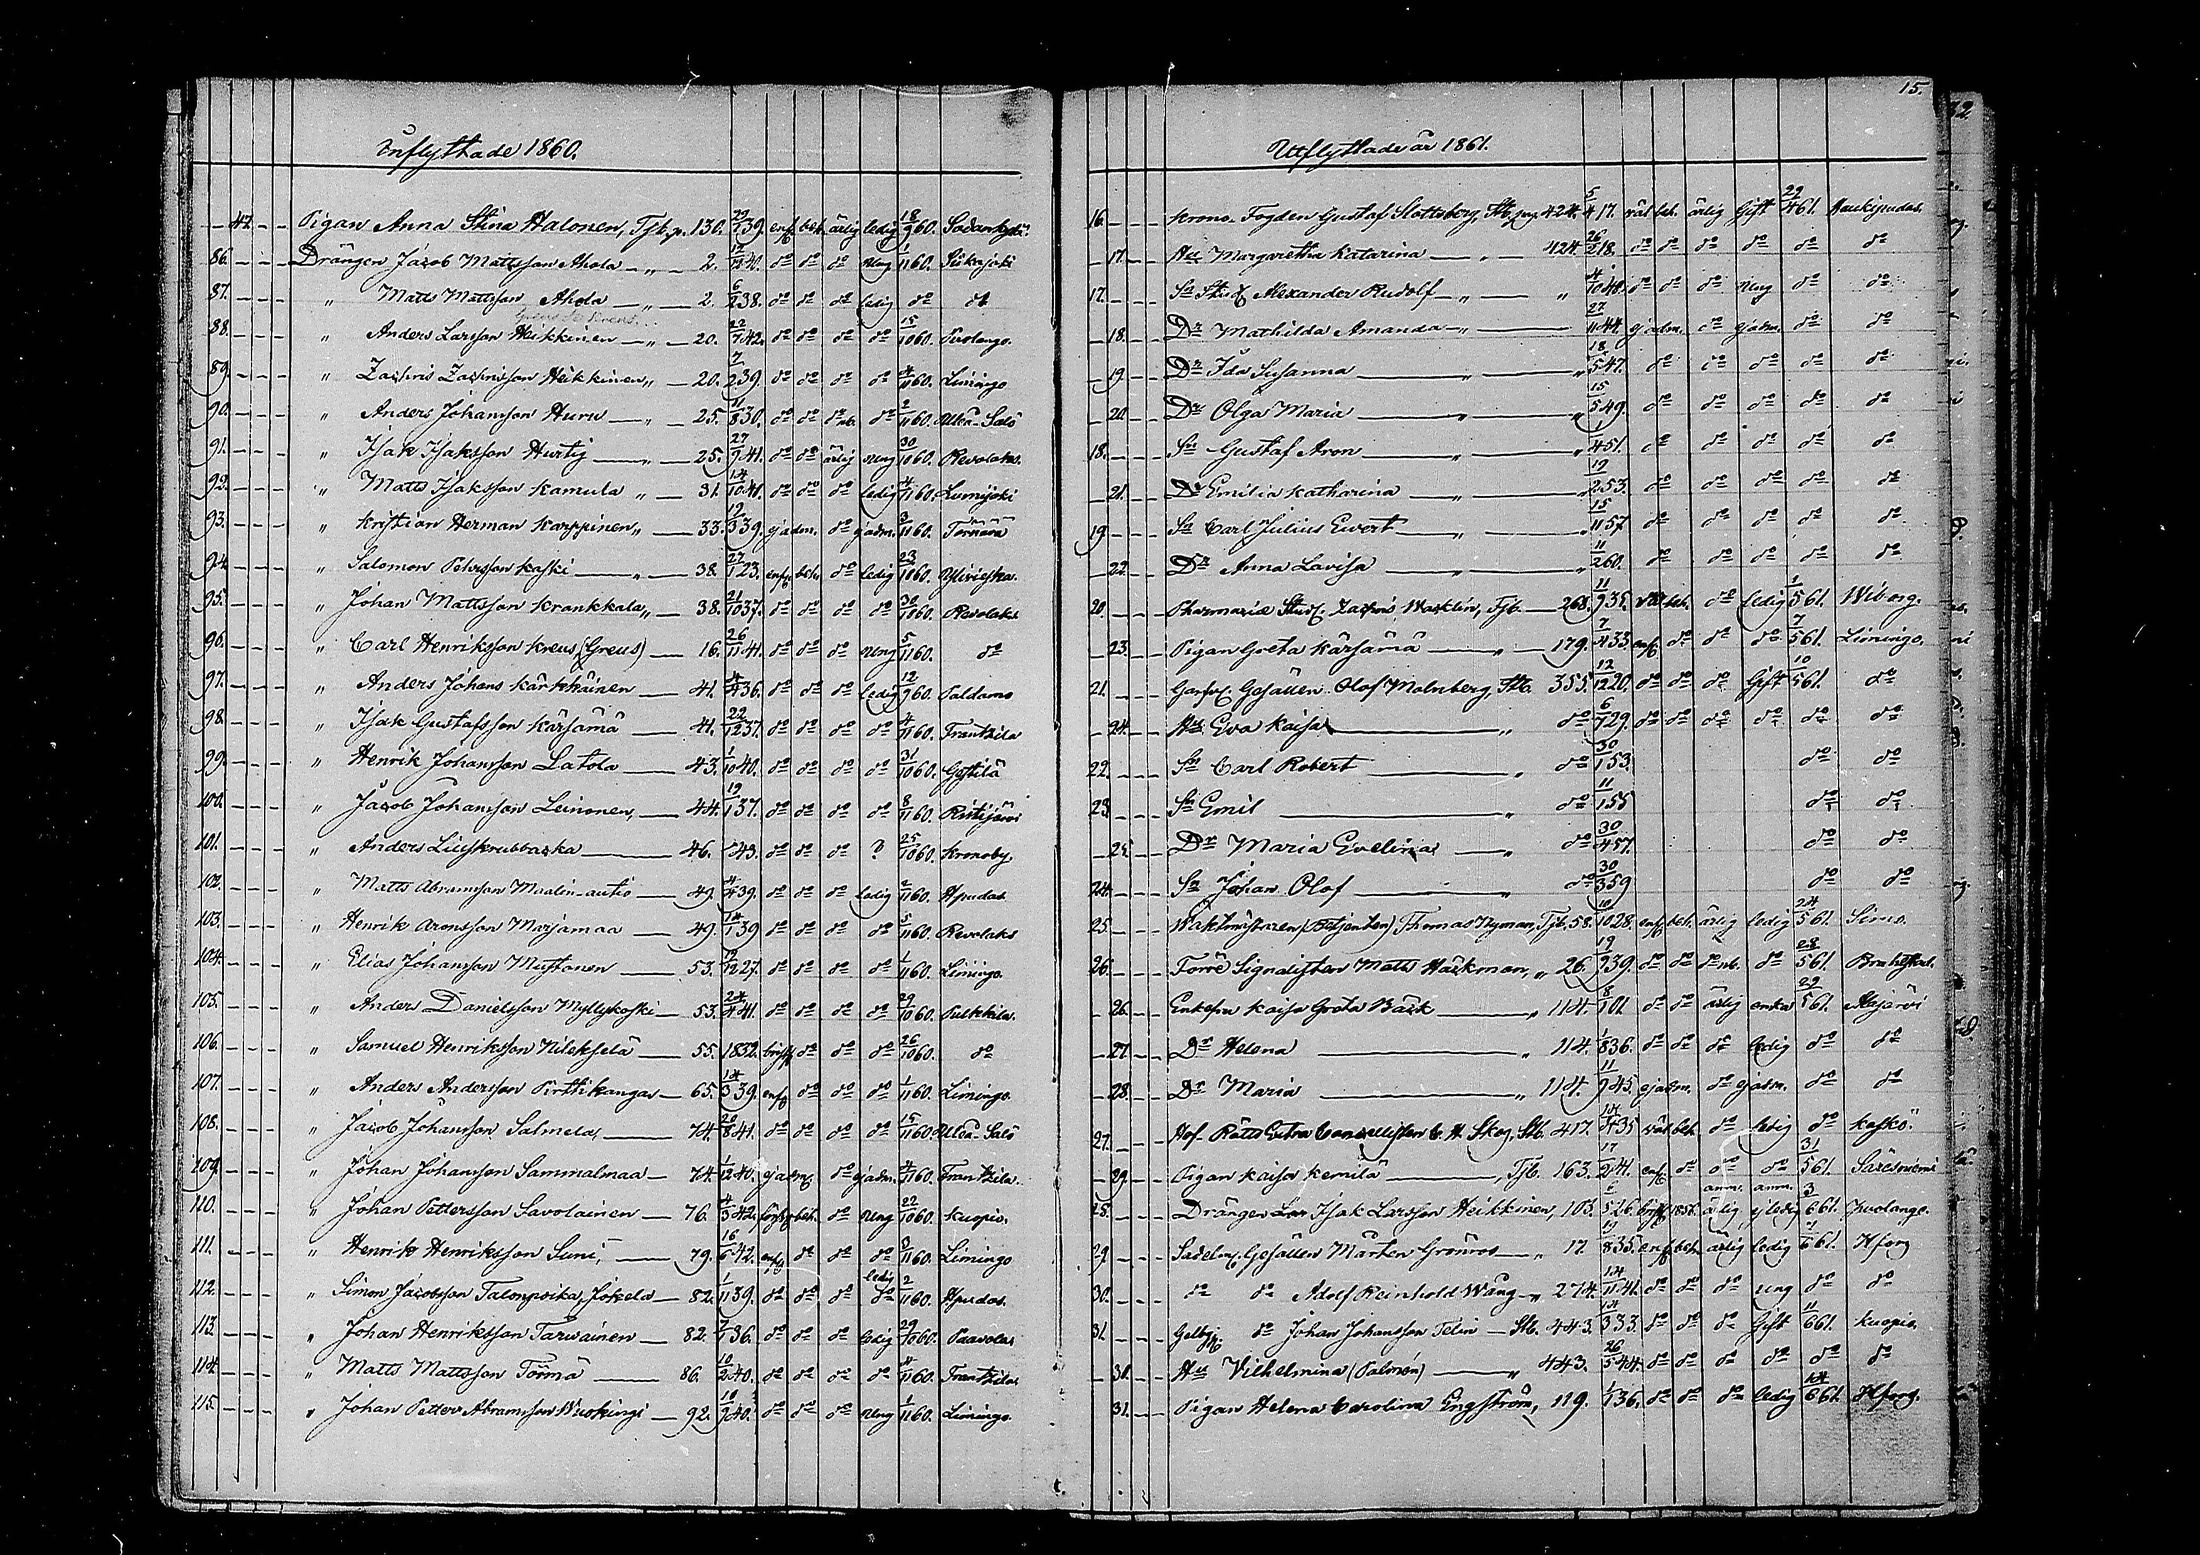 15.
Inflyttade 1860.
47. Pigan Anna Stina Halonen, Tjb. p. 130. 29/7 39. enf. beh. ärlig ledig 18/9 60. Sodankylä
86. Drängen Jacob Mattsson Ahola „ 2. 12/12 40. do do do ung 1/11 60. Siikajoki
87. „ Matts Mattsson Ahola „ 2. 6/2 38. do do do ledig do do
88. „ Anders Larsson Heikkinen „ 20. 22/7 42. do do do do 15/10 60. Puolango.
89. „ Zachris Zachrisson Heikkinen „ 20. 7/2 39. do do do do 4/11 60. Limingo
90. „ Anders Johansson Huru „ 25. 11/8 30. do do do nb. do 2/11 60. Uleå-Salo
91. „ Isak Isaksson Hurtig „ 25. 27/9 41. do do ärlig ung 30/10 60. Revolaks.
92. „ Matts Isaksson Kamula „ 31. 14/10 41. do do do ledig 4/11 60. Lumijoki
93. „ Kristian Herman Karppinen „ 33. 12/3 39. ej adm. do ej adm. 3/11 60. Törnävä
94. „ Salomon Petersson Kaski „ 38. 27/1 23. enf. beh. do ledig 23/10 60. Ylivieska.
95. „ Johan Mattsson Krankkala „ 38. 21/10 37. do do do do 30/10 60. Revolaks.
96. „ Carl Henriksson Kreus (Greus) 16. 26/11 41. do do do ung 5/11 60. do
97. „ Anders Johans Kärkkäinen 41. 4/4 36. do do do ledig 12/9 60. Paldamo
98. „ Isak Gustafsson Kärsämä 41. 22/12 37. do do do do 4/11 60. Frantsila
99. „ Henrik Johansson Latola 43. 1/10 40. do do do do 31/10 60. Gestilä
100. „ Jacob Johansson Leinonen, 44. 19/1 37. do do do do 8/11 60. Ristijärvi
101. „ Anders Liljskrubbacka 46. 43. do do do ? 25/10 60. Kronoby.
102. „ Matts Abramsson Maalin-autio 49. 4/4 39. do do do ledig 2/11 60. Hpudas.
103. „ Henrik Aronsson Marjamaa 49. 14/1 39 do do do do 5/11 60. Revolaks
104. „ Elias Johansson Mustonen 53. 19/12 27. do do do do 1/11 60. Limingo.
105. „ Anders Danielsson Myllykoski 53. 24/4 41. do do do do 29/10 60. Pulkkila.
106. „ Samuel Henriksson Nilekselä 55. 1832. brist. do do do 26/10 60. do
107. „ Anders Andersson Pirttikangas 65. 14/3 39. enf. do do do 1/11 60. Limingo.
108. „ Jacob Johansson Salmela, 74. 20/8 41. do do do do 15/11 60. Uleå-Salo
109. „ Johan Johansson Sammalmaa 74. 1/12 40. ej adm. do ej adm. 4/11 60. Frantsila.
110. „ Johan Pettersson Savolainen 76. 4/3 42. beh. do ung 22/10 60. Kuopio.
111. „ Henrik Henriksson Suni, 79. 16/6 42. enf. do do do 3/11 60. Limingo
112. „ Simon Jacobsson Talonpoika, Jokela 82. 1/11 39. do do do ledig do 2/11 60. Hpudas.
113. „ Johan Henriksson Tarvainen 82. 7/1 36. do do do ledig 29/10 60. Paavola.
114. „ Matts Mattsson Törmä 86. 10/2 40. do do do do 4/11 60. Frantsila.
115. „ Johan Petter Abramsson Wuokingi 92. 19/1 40. do do do ung 1/11 60. Limingo.
Utflyttade år 1861.
16. Krono-Fogden Gustaf Slottsberg, Stb. pag. 424. 5/4 17. väl beh. ärlig Gift 29/4 61. Haukipudas.
17. Hu Margaretha Katarina „ 424. 26/2 18. do do do do do do
17. Sn Stud. Alexander Rudolf „ „ 4/10 40. do do do ung do do
18. Dr Mathilda Amanda „ 27/11 44. ej adm. do ej adm. do do
19. Dr Ida Susanna „ „ 18/5 47. do do do do do
20. Dr Olga Maria „ „ 15/5 49. do do do do do
18. Sn Gustaf Aron „ „ 4 51. do do do do do
21. Dr Emilia Katharina „ „ 19/2 53. do do do do do
19. Sn Carl Julius Evert „ „ 15/11 57. do do do do do
22. Dr Anna Lovisa „ „ 11/2 60. do do do do do
20. Pharmacie Stud. Zachris Wacklin, Tjb. 268. 11/9 35. väl beh. do ledig 1/5 61. Wiborg.
23. Pigan Greta Kärsämä „ 179. 7/4 33. enf. do do do 7/5 61. Limingo.
21. Garfv. Gesällen Olof Malmberg, Stb. 355. 12/12 20. do do do Gift 10/5 61. do
24. Hu Eva Kaisa „ do 6/7 29. do do do do do do
22. Sn Carl Robert „ do 30/1 53. do do
23. Sn Emil „ do 11/1 55 do do
25. Dr Maria Evelina „ do 30/4 57. do do
24. Sn Johan Olof „ do 30/3 59 do do
25. Waktmästaren (Betjenten) Thomas Nyman, Tjb. 58. 10/10 28. enf. beh. ärlig ledig 24/5 61. Simo.
26. Förre Signalisten Matts Häckman, „ 26. 19/9 39. do do do nb. do 28/5 61. Brahestad.
26. Enkefru Kaisa Greta Bäck „ 114. 8/1 01. do do ärlig enka 29/5 61. Alajärvi
27. Dr Helena „ 114. 1/8 36. do do do ledig do do
28. Dr Maria „ 114. 11/9 45. ej adm. do ej adm. do do
27. Hof-Rätts Extra Cancellisten C. H. Skog, Stb. 417. 14/4 35 väl beh. do ledig do Kaskö.
29. Pigan Kaisa Kemilä, Tjb. 163. 17/2 41. enf. do do do 31/5 61. Säresniemi
28. Drängen Isak Larsson Heikkinen, 103. 5/5 26. brist. 1857. anm. ärlig anm. ej ledig 3/6 61. Puolango.
29. Sadelm. Gesällen Mårten Grönroos „ 17. 19/8 35. enf. beh. ärlig ledig 7/6 61. Hfors
30. do do Adolf Reinhold Wång „ 274. 14/11 41. do do do ung do do
31. Gelbg. do Johan Johansson Telin Stb. 443. 14/3 33. do do do Gift 11/6 61. Kuopio.
30. Hu Vilhelmina (Palmén) „ 443. 26/5 44. do do do do do do
31. Pigan Helena Carolina Engström, 119. 1/1 36. do do do ledig 14/6 61. Hfors.